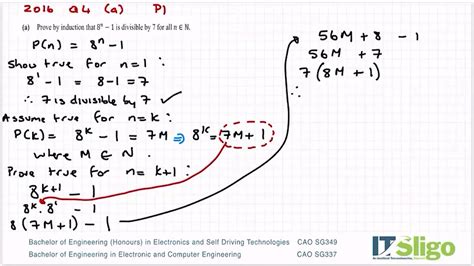 2016 Q4 (a) P1
(a) Prove by induction that 8ⁿ − 1 is divisible by 7 for all n ∈ ℕ.
P(n) = 8ⁿ − 1
Show true for n = 1:
8¹ − 1 = 8 − 1 = 7
∴ 7 is divisible by 7 ✓
Assume true for n = k:
P(k) = 8ᵏ − 1 = 7M ⇒ 8ᵏ = 7M + 1
where M ∈ N.
Prove true for n = k+1:
8ᵏ⁺¹ − 1
8ᵏ. 8¹ − 1
8(7M+1) − 1
56M + 8 − 1
56M + 7
7(8M + 1)
∴
Bachelor of Engineering (Honours) in Electronics and Self Driving Technologies CAO SG349
Bachelor of Engineering in Electronic and Computer Engineering CAO SG337
IT Sligo